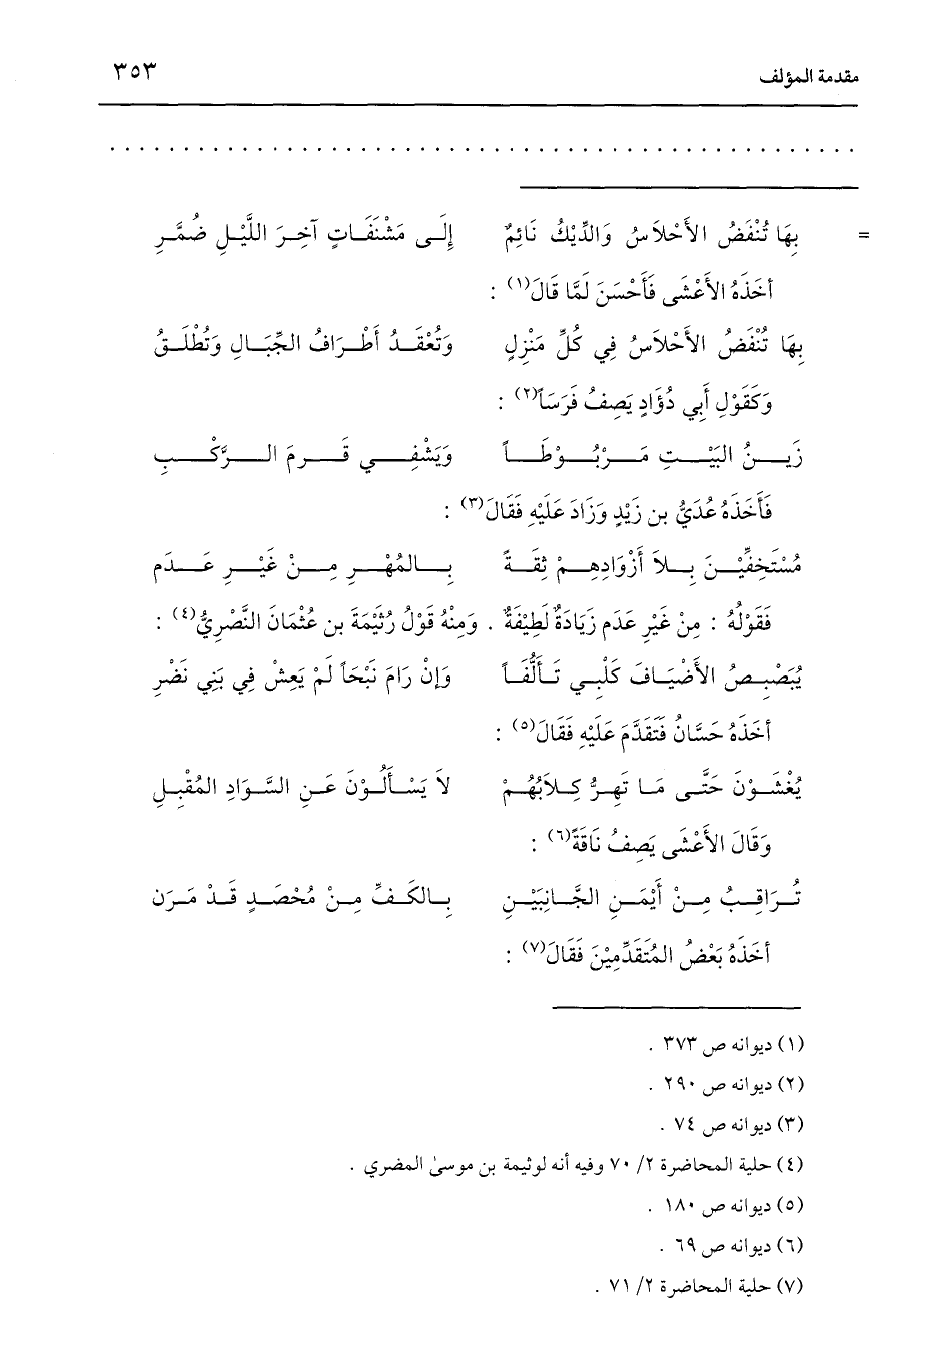 مقدمة المؤلف ٣٥٣
. . . . . . . . . . . . . . . . . . . . . . . . . . . . . . . . . . . . . . . . . . . . . . . . . . .
= بِهَا تُنْفَضُ الأَحْلَاسُ وَالدِّيْكُ نَائِمٌ إِلَى مَشْنَفَاتٍ آخِرَ اللَّيْلِ ضُمَّرِ
أَخَذَهُ الأَعْشَى فَأَحْسَنَ لَمَّا قَالَ(١) :
بِهَا تُنْفَضُ الأَحْلَاسُ فِي كُلِّ مَنْزِلٍ وَتُعْقَدُ أَطْرَافُ الحِبَالِ وَتُطْلَقُ
وَكَقَوْلِ أَبِي دُؤَادٍ يَصِفُ فَرَسَاً(٢) :
زَيِنُ البَيْتِ مَرْبُوْطَاً وَيَشْفِي قَرِمَ الرَّكْبِ
فَأَخَذَهُ عُدَيُّ بن زَيْدٍ وَزَادَ عَلَيْهِ فَقَالَ(٣) :
مُسْتَخِفِّيْنَ بِلاَ أَزْوَادِهِمْ ثِقَةً بِالمُهْرِ مِنْ غَيْرِ عَدَم
فَقَوْلُهُ : مِنْ غَيْرِ عَدَم زِيَادَةٌ لَطِيْفَةٌ . وَمِنْهُ قَوْلُ رُثَيْمَةَ بن عثْمَانَ النَّصْرِيُّ(٤) :
يُبَصْبِصُ الأَضْيَافَ كَلْبِي تَأَلُّفَاً وَإِنْ رَامَ نَبْحَاً لَمْ يَعِشْ فِي بَنِي نَصْرِ
أَخَذَهُ حَسَّانُ فَتَقَدَّمَ عَلَيْهِ فَقَالَ(٥) :
يُغْشَوْنَ حَتَّى مَا تَهِرُّ كِلاَبُهُمْ لاَ يَسْأَلُوْنَ عَنِ السَّوَادِ المُقْبِلِ
وَقَالَ الأَعْشَى يَصِفُ نَاقَةً(٦) :
تُرَاقِبُ مِنْ أَيْمَنِ الجَّانِبَيْنِ بِالكَفِّ مِنْ مُحْصَدٍ قَدْ مَرَن
أَخَذَهُ بَعْضُ المُتَقَدِّمِيْنَ فَقَالَ(٧) :
(١) ديوانه ص ٣٧٣ .
(٢) ديوانه ص ٢٩٠ .
(٣) ديوانه ص ٧٤ .
(٤) حلية المحاضرة ٢/ ٧٠ وفيه أنه لوثيمة بن موسىٰ المضري .
(٥) ديوانه ص ١٨٠ .
(٦) ديوانه ص ٦٩ .
(٧) حلية المحاضرة ٢/ ٧١ .